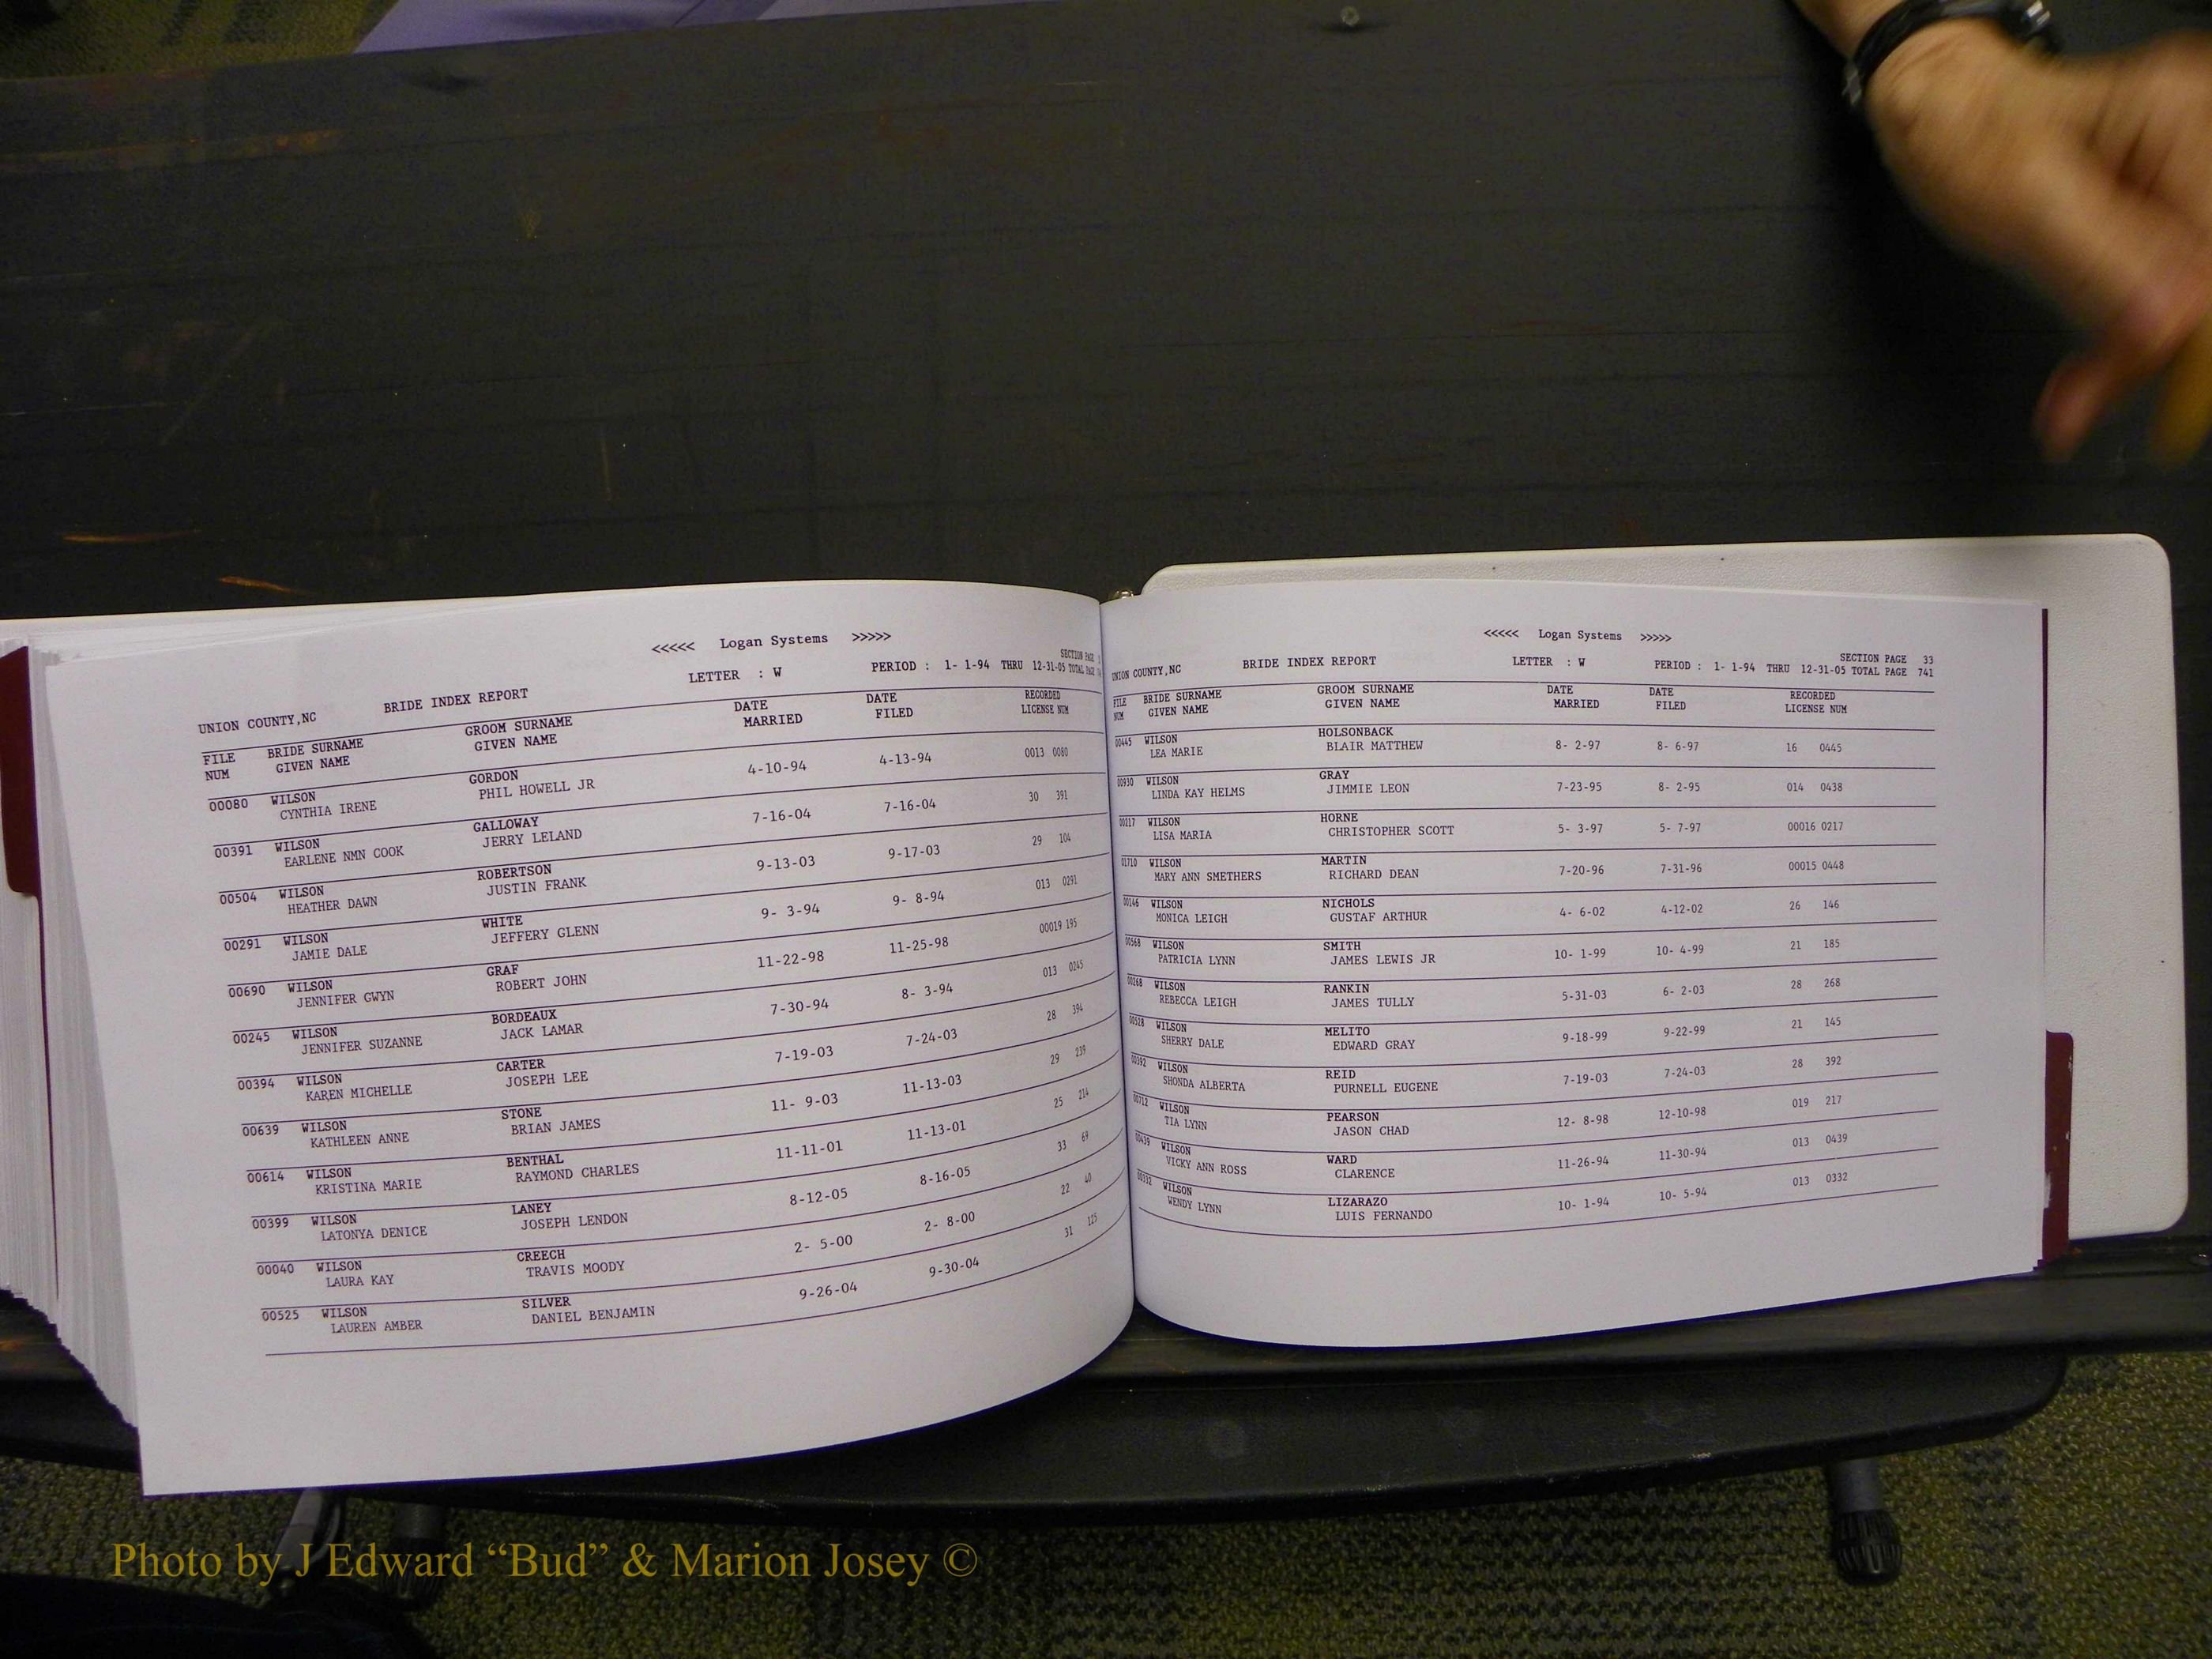 <<<<< Logan Systems >>>>>
SECTION PAGE
UNION COUNTY,NC BRIDE INDEX REPORT LETTER : W PERIOD : 1- 1-94 THRU 12-31-05 TOTAL PAGE
FILE BRIDE SURNAME GROOM SURNAME DATE DATE RECORDED
NUM GIVEN NAME GIVEN NAME MARRIED FILED LICENSE NUM
00080 WILSON GORDON 4-10-94 4-13-94 0013 0080
CYNTHIA IRENE PHIL HOWELL JR
00391 WILSON GALLOWAY 7-16-04 7-16-04 30 391
EARLENE NMN COOK JERRY LELAND
00504 WILSON ROBERTSON 9-13-03 9-17-03 29 104
HEATHER DAWN JUSTIN FRANK
00291 WILSON WHITE 9- 3-94 9- 8-94 013 0291
JAMIE DALE JEFFERY GLENN
00690 WILSON GRAF 11-22-98 11-25-98 00019 195
JENNIFER GWYN ROBERT JOHN
00245 WILSON BORDEAUX 7-30-94 8- 3-94 013 0245
JENNIFER SUZANNE JACK LAMAR
00394 WILSON CARTER 7-19-03 7-24-03 28 394
KAREN MICHELLE JOSEPH LEE
00639 WILSON STONE 11- 9-03 11-13-03 29 239
KATHLEEN ANNE BRIAN JAMES
00614 WILSON BENTHAL 11-11-01 11-13-01 25 214
KRISTINA MARIE RAYMOND CHARLES
00399 WILSON LANEY 8-12-05 8-16-05 33 69
LATONYA DENICE JOSEPH LENDON
00040 WILSON CREECH 2- 5-00 2- 8-00 22 40
LAURA KAY TRAVIS MOODY
00525 WILSON SILVER 9-26-04 9-30-04 31 125
LAUREN AMBER DANIEL BENJAMIN
<<<<< Logan Systems >>>>>
SECTION PAGE 33
UNION COUNTY,NC BRIDE INDEX REPORT LETTER : W PERIOD : 1- 1-94 THRU 12-31-05 TOTAL PAGE 741
FILE BRIDE SURNAME GROOM SURNAME DATE DATE RECORDED
NUM GIVEN NAME GIVEN NAME MARRIED FILED LICENSE NUM
00445 WILSON HOLSONBACK 8- 2-97 8- 6-97 16 0445
LEA MARIE BLAIR MATTHEW
00930 WILSON GRAY 7-23-95 8- 2-95 014 0438
LINDA KAY HELMS JIMMIE LEON
00217 WILSON HORNE 5- 3-97 5- 7-97 00016 0217
LISA MARIA CHRISTOPHER SCOTT
01710 WILSON MARTIN 7-20-96 7-31-96 00015 0448
MARY ANN SMETHERS RICHARD DEAN
00146 WILSON NICHOLS 4- 6-02 4-12-02 26 146
MONICA LEIGH GUSTAF ARTHUR
00568 WILSON SMITH 10- 1-99 10- 4-99 21 185
PATRICIA LYNN JAMES LEWIS JR
00268 WILSON RANKIN 5-31-03 6- 2-03 28 268
REBECCA LEIGH JAMES TULLY
00528 WILSON MELITO 9-18-99 9-22-99 21 145
SHERRY DALE EDWARD GRAY
00392 WILSON REID 7-19-03 7-24-03 28 392
SHONDA ALBERTA PURNELL EUGENE
00712 WILSON PEARSON 12- 8-98 12-10-98 019 217
TIA LYNN JASON CHAD
00439 WILSON WARD 11-26-94 11-30-94 013 0439
VICKY ANN ROSS CLARENCE
00332 WILSON LIZARAZO 10- 1-94 10- 5-94 013 0332
WENDY LYNN LUIS FERNANDO
Photo by J Edward “Bud” & Marion Josey ©